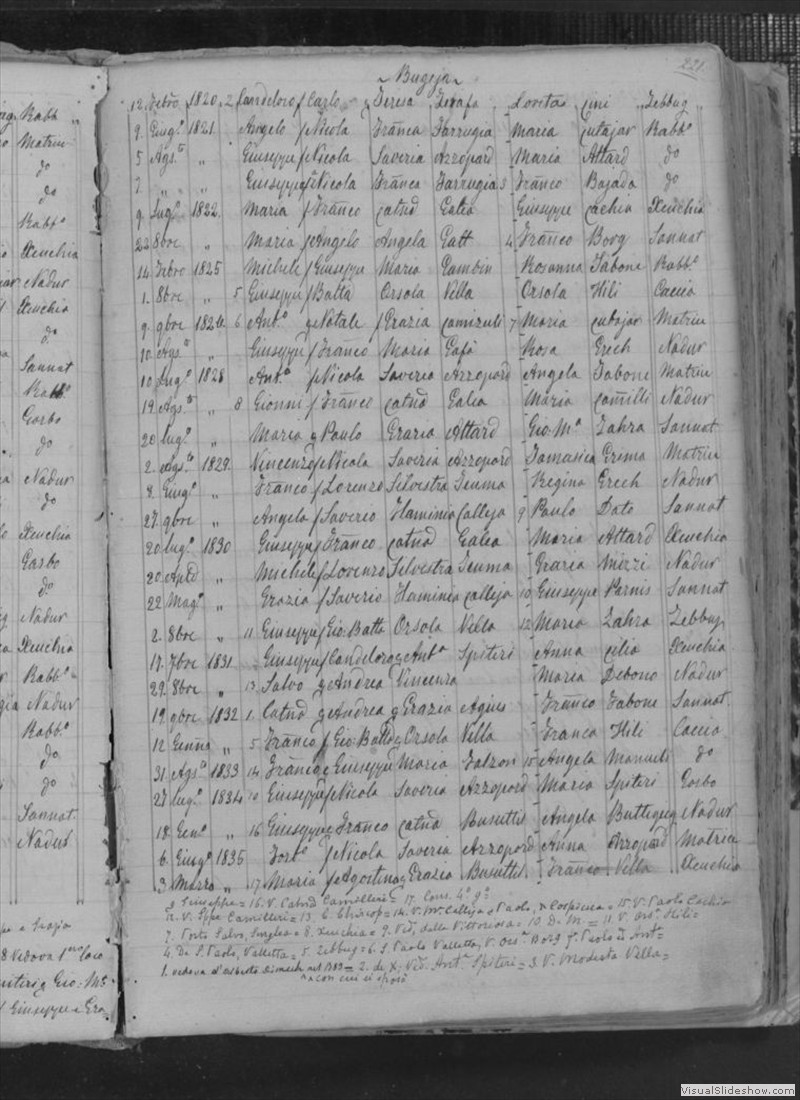 221.
~ Bugeja ~
12. Febro 1820. 2 Candeloro f Carlo Teresa Zerafa Lorita Cini Zebbug
9. Giugo 1821. Angelo f Nicola Franca Farrugia Maria Cutajar Rabbo
5 Agsto " Giuseppe f Nicola Saveria Azzopard Maria Attard do
7. " " Giuseppe f Nicola Franca Farrugia 3 Franco Bajada do
9. Lugo 1822. Maria f Franco Catna Galea Giuseppe Cachia Xeuchia
23 8bre " Maria f Angelo Angela Gatt 4 Franco Borg Sannat
14. 1825 Michele f Giuseppe Maria Gambin Rosanna Tabone Rabbo
1. 8bre " 5 Giuseppe f Batta Orsola Vella Orsola Hili Caccia
9. 9bre 1826 6 Anto g Natale f Grazia Camizuli 7 Maria Cutajar Matrice
10. Agsto " Giuseppe f Franco Maria Cafà Rosa Grech Nadur
10 Lugo 1828 Anto f Nicola Saveria Azzopard Angela Tabone Matrice
19. Agsto " 8 Gionni f Franco Catna Galea Maria Camilli Nadur
20 Lugo " Maria g Paulo Grazia Attard Gio: Ma Zahra Sannat
2. Agsto 1829. Vincenzo f Nicola Saveria Azzopard Tomasica Grima Matrice
8. Giugo " Franco f Lorenzo Silvestra Teuma Regina Grech Nadur
27. 9bre " Angelo f Saverio Flaminia Calleja 9 Paulo Dato Sannat
20 Lugo 1830 Giuseppe f Franco Catna Galea Maria Attard Xeuchia
20. " Michele f Lorenzo Silvestra Teuma Grazia Mizzi Nadur
22 Mago " Grazia f Saverio Flaminia Calleja 10 Giuseppe Parnis Sannat
2. 8bre " 11. Giuseppe f Gio: Batta Orsola Vella 12 Maria Zahra Zebbug
17. 7bre 1831. Giuseppe f Candeloro g Anta Spiteri Anna Cilia Xeuchia
29. 8bre " 13. Salvo g Andrea Vincenza Maria Debono Nadur
19 9bre 1832 1. Catna g Andrea g Grazia Agius Franco Tabone Sannat
12 Genna " 5 Franco f Gio: Batta g Orsola Vella Franca Hili Caccia
31. Agsto 1833 14 Franca g Giuseppe Maria Falzon 15 Angelo Manueli do
27 Lugo 1834 10 Giuseppe f Nicola Saveria Azzopard Maria Spiteri Gorbo
18. Geno " 16 Giuseppe g Franco Catna Busuttil Angela Buttigieg Nadur
6. Giugo 1835 Forto f Nicola Saveria Azzopard Anna Azzopard Matrice
3 Marzo " 17 Maria f Agostino g Grazia Busuttil Franco Vella Xeuchia
8 Giuseppe = 16. V. Catna Camelleri = 17. Cons. 4o go
12. V. Gppe Camelleri = 13. = 14. V. Calleja Paolo, Cospicua = 15. V. Paolo Cachia
7. Porto Salvo, Senglea = 8. Xeuchia = 9. Ved. della Vittoriosa = 10. De M. = 11. V. Orsa Hili =
4. De S. Paolo, Valletta = 5. Zebbug = 6. S. Paolo Valletta, V. Orsa Borg fa Paolo ed Anta =
1. vedova d'Alberto nel 1783 = 2. de X: Ved. Anta Spiteri = 3. V. Modesta Vella =
con cui si sposò
Rabbo
Matrice
do
do
Rabbo
Xeuchia
Nadur
Xeuchia
do
Sannat
Rabbo
Gorbo
do
Nadur
do
Xeuchia
Garbo
do
Nadur
Xeuchia
Rabbo
Nadur
Rabbo
do
do
Sannat
Nadur
e Grazia
8 Vedova
Gio: Ma
Giuseppe e Gra
VisualSlideshow.com